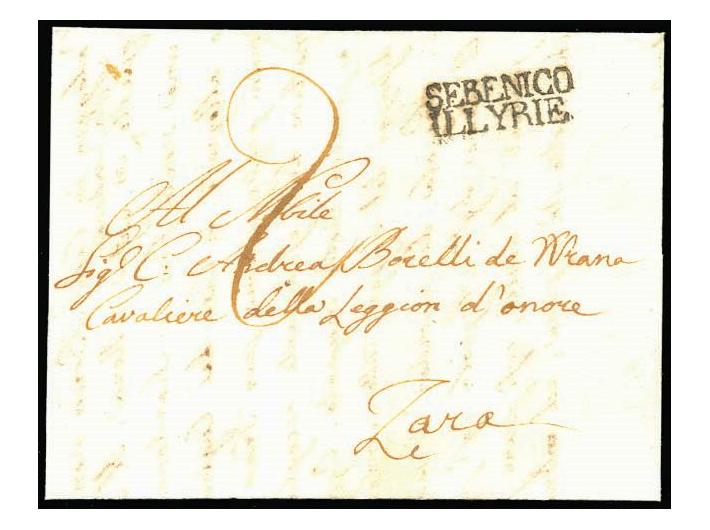 SEBENICO
ILLYRIE
2
Al Nobile
Sigr C: Andrea Borelli de Wrana
Cavaliere della Leggion d'onore
Zara